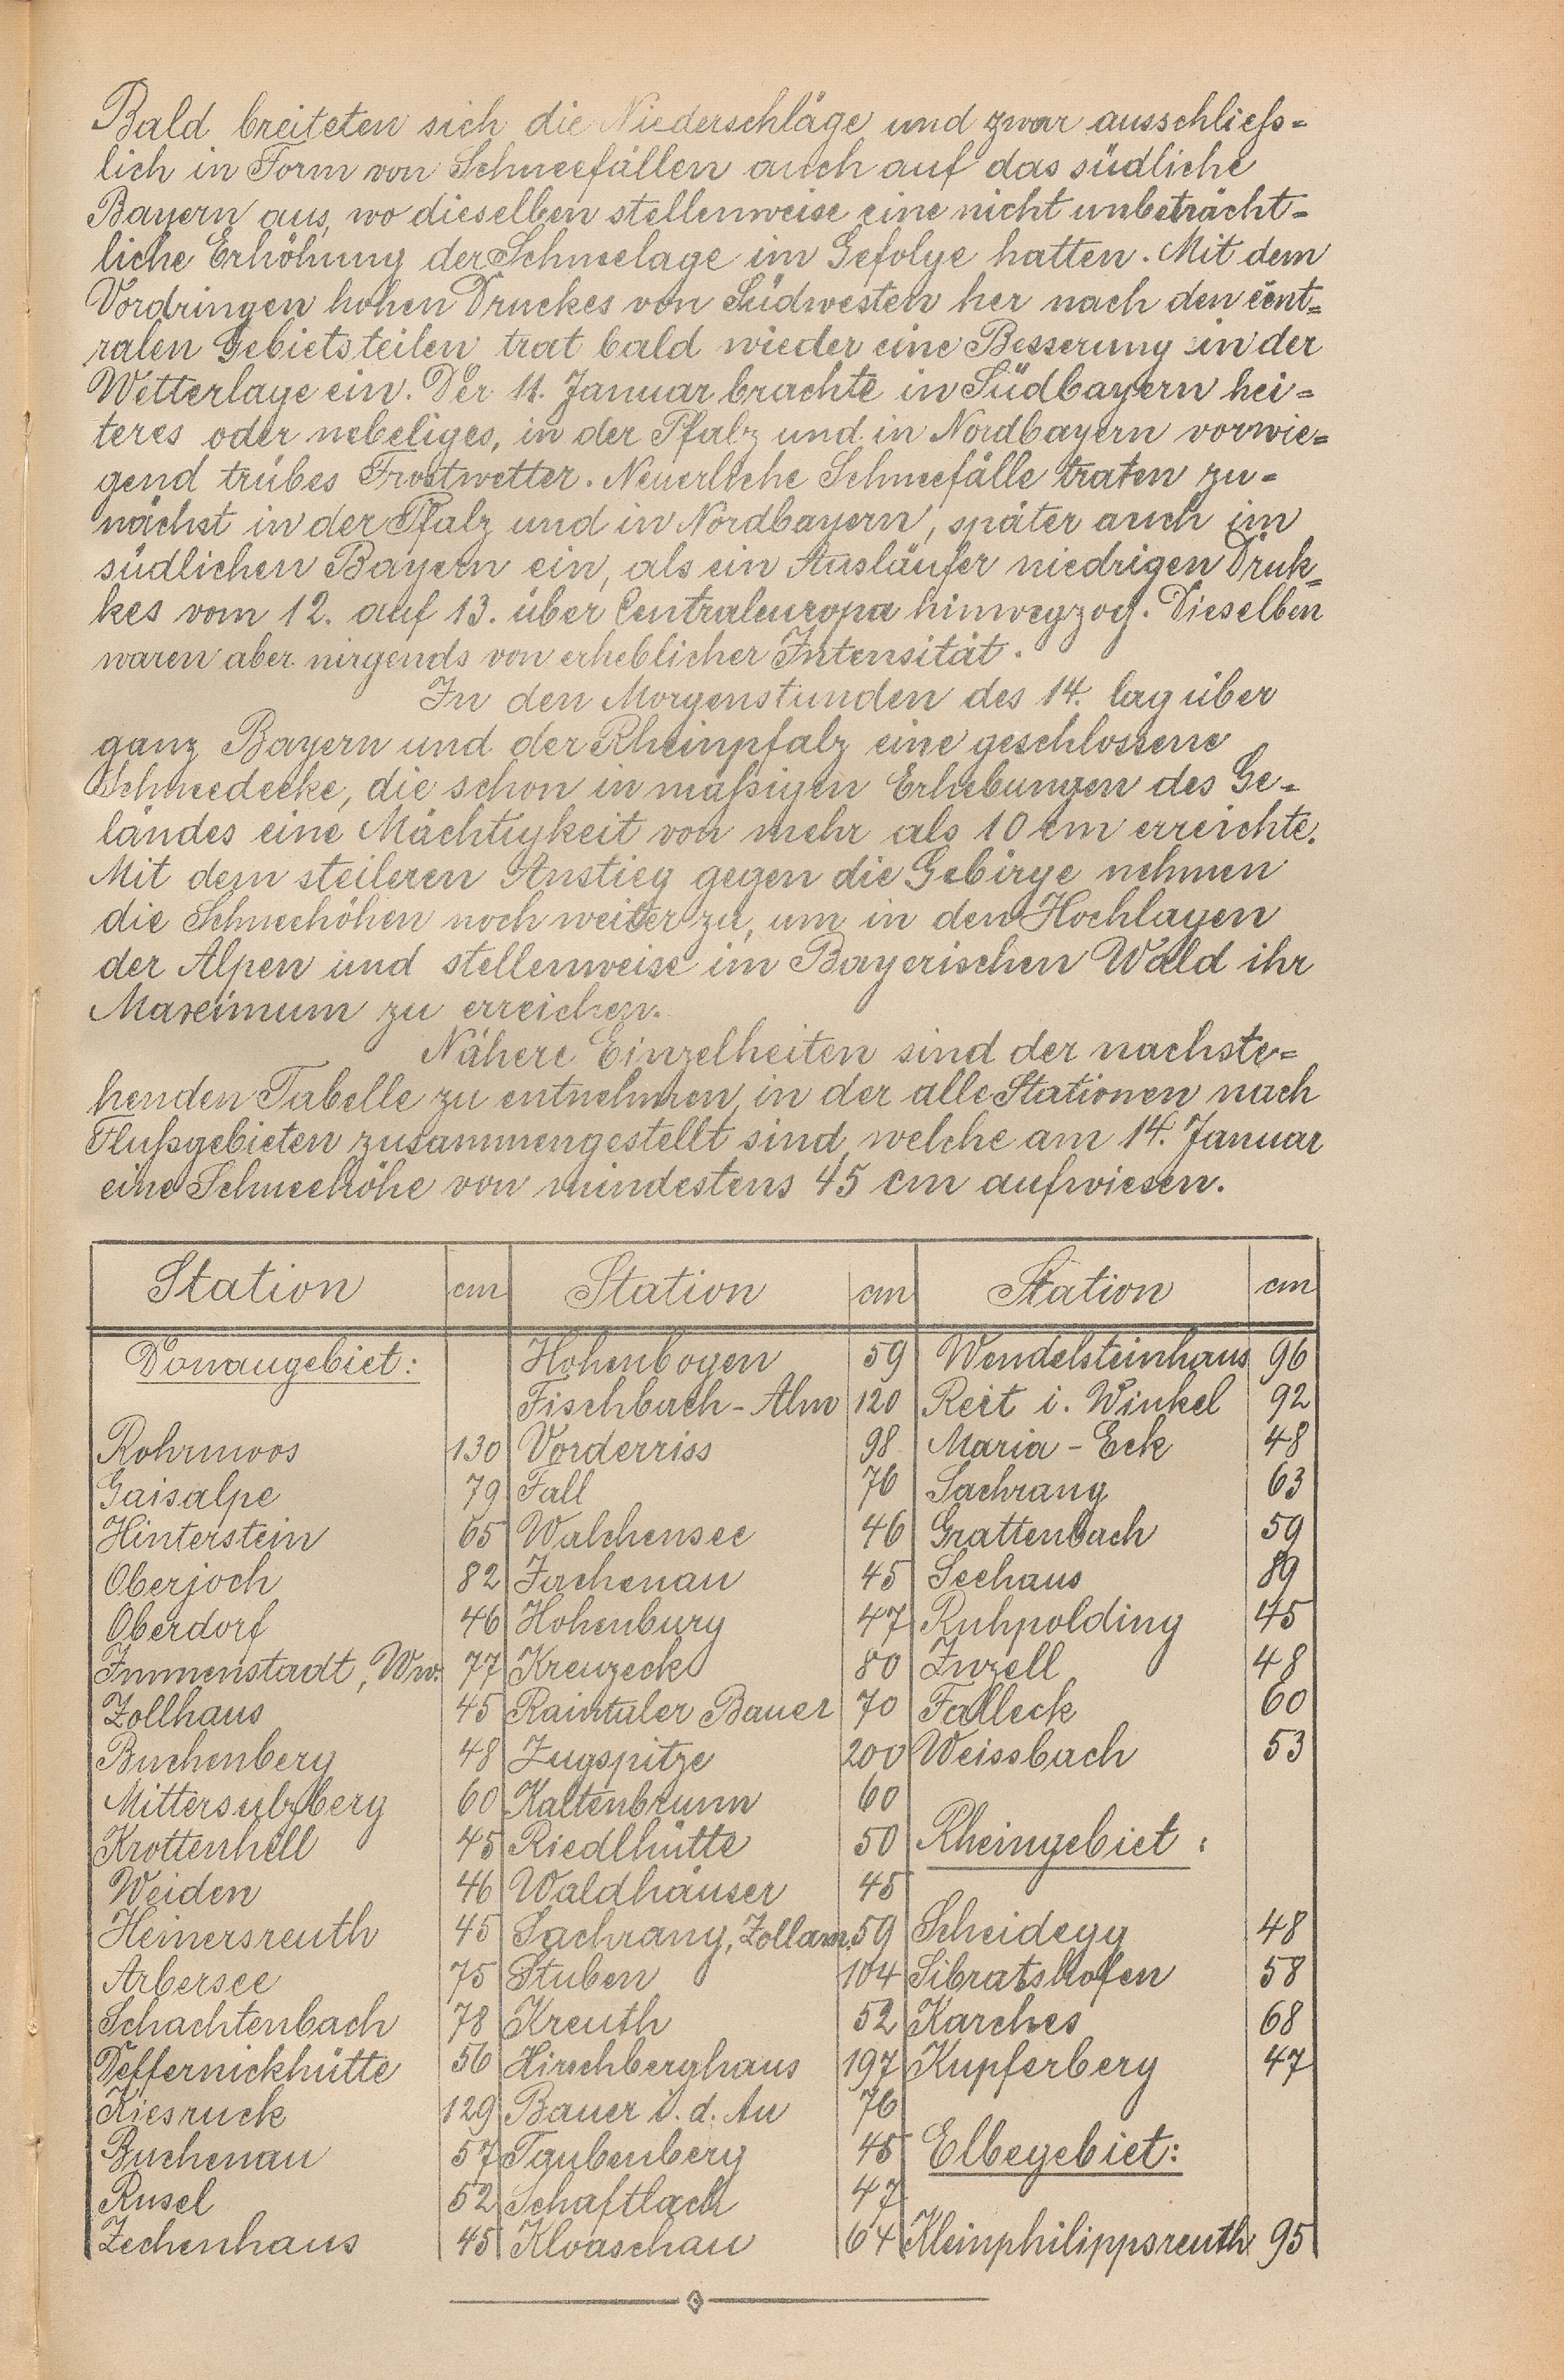 Bald breiteten sich die Niederschläge und zwar ausschließ-
lich in Form von Schneefällen auch auf das südliche
Bayern aus, wo dieselben stellenweise eine nicht unbeträcht-
liche Erhöhung der Schneelage im Gefolge hatten. Mit dem
Vordringen hohen Druckes von Südwesten her nach den cent-
ralen Gebietsteilen trat bald wieder eine Besserung in der
Wetterlage ein. Der 11. Januar brachte in Südbayern hei-
teres oder nebeliges, in der Pfalz und in Nordbayern vorwie-
gend trübes Frostwetter. Neuerliche Schneefälle traten zu-
nächst in der Pfalz und in Nordbayern, später auch im
südlichen Bayern ein, als ein Ausläufer niedrigen Druk-
kes vom 12. auf 13. über Centraleuropa hinwegzog. Dieselben
waren aber nirgends von erheblicher Intensität.
In den Morgenstunden des 14. lag über
ganz Bayern und der Rheinpfalz eine geschlossene
Schneedecke, die schon in mäßigen Erhebungen des Ge-
ländes eine Mächtigkeit von mehr als 10 cm erreichte.
Mit dem steileren Anstieg gegen die Gebirge nehmen
die Schneehöhen noch weiter zu, um in den Hochlagen
der Alpen und stellenweise im Bayerischen Wald ihr
Maximum zu erreichen.
Nähere Einzelheiten sind der nachste-
henden Tabelle zu entnehmen, in der alle Stationen nach
Flußgebieten zusammengestellt sind, welche am 14. Januar
eine Schneehöhe von mindestens 45 cm aufwiesen.
Station cm Station cm Station cm
Donaugebiet: Hohenbogen 59 Wendelsteinhaus 96
Fischbach-Alm 120 Reit i. Winkel 92
Rohrmoos 130 Vorderriss 98 Maria-Eck 48
Gaisalpe 79 Fall 76 Sachrang 63
Hinterstein 65 Walchensee 46 Grattenbach 59
Oberjoch 82 Jachenau 45 Seehaus 89
Oberdorf 46 Hohenburg 47 Ruhpolding 45
Immenstadt, Ww. 77 Kreuzeck 80 Inzell 48
Zollhaus 45 Raintaler Bauer 70 Falleck 60
Buchenberg 48 Zugspitze 200 Weissbach 53
Mittersulzberg 60 Kaltenbrunn 60
Krottenhill 45 Riedlhütte 50 Rheingebiet:
Weiden 46 Waldhäuser 45
Heinersreuth 45 Sachrang, Zollam. 59 Scheidegg 48
Arbersee 75 Stuben 104 Sibratshofen 58
Schachtenbach 78 Kreuth 52 Karches 68
Deffernickhütte 56 Hirschberghaus 197 Kupferberg 47
Kiesruck 129 Bauer i. d. Au 76
Buchenau 57 Taubenberg 45 Elbegebiet:
Rusel 52 Schaftlach 47
Zechenhaus 45 Kloaschau 64 Kleinphilippsreuth 95